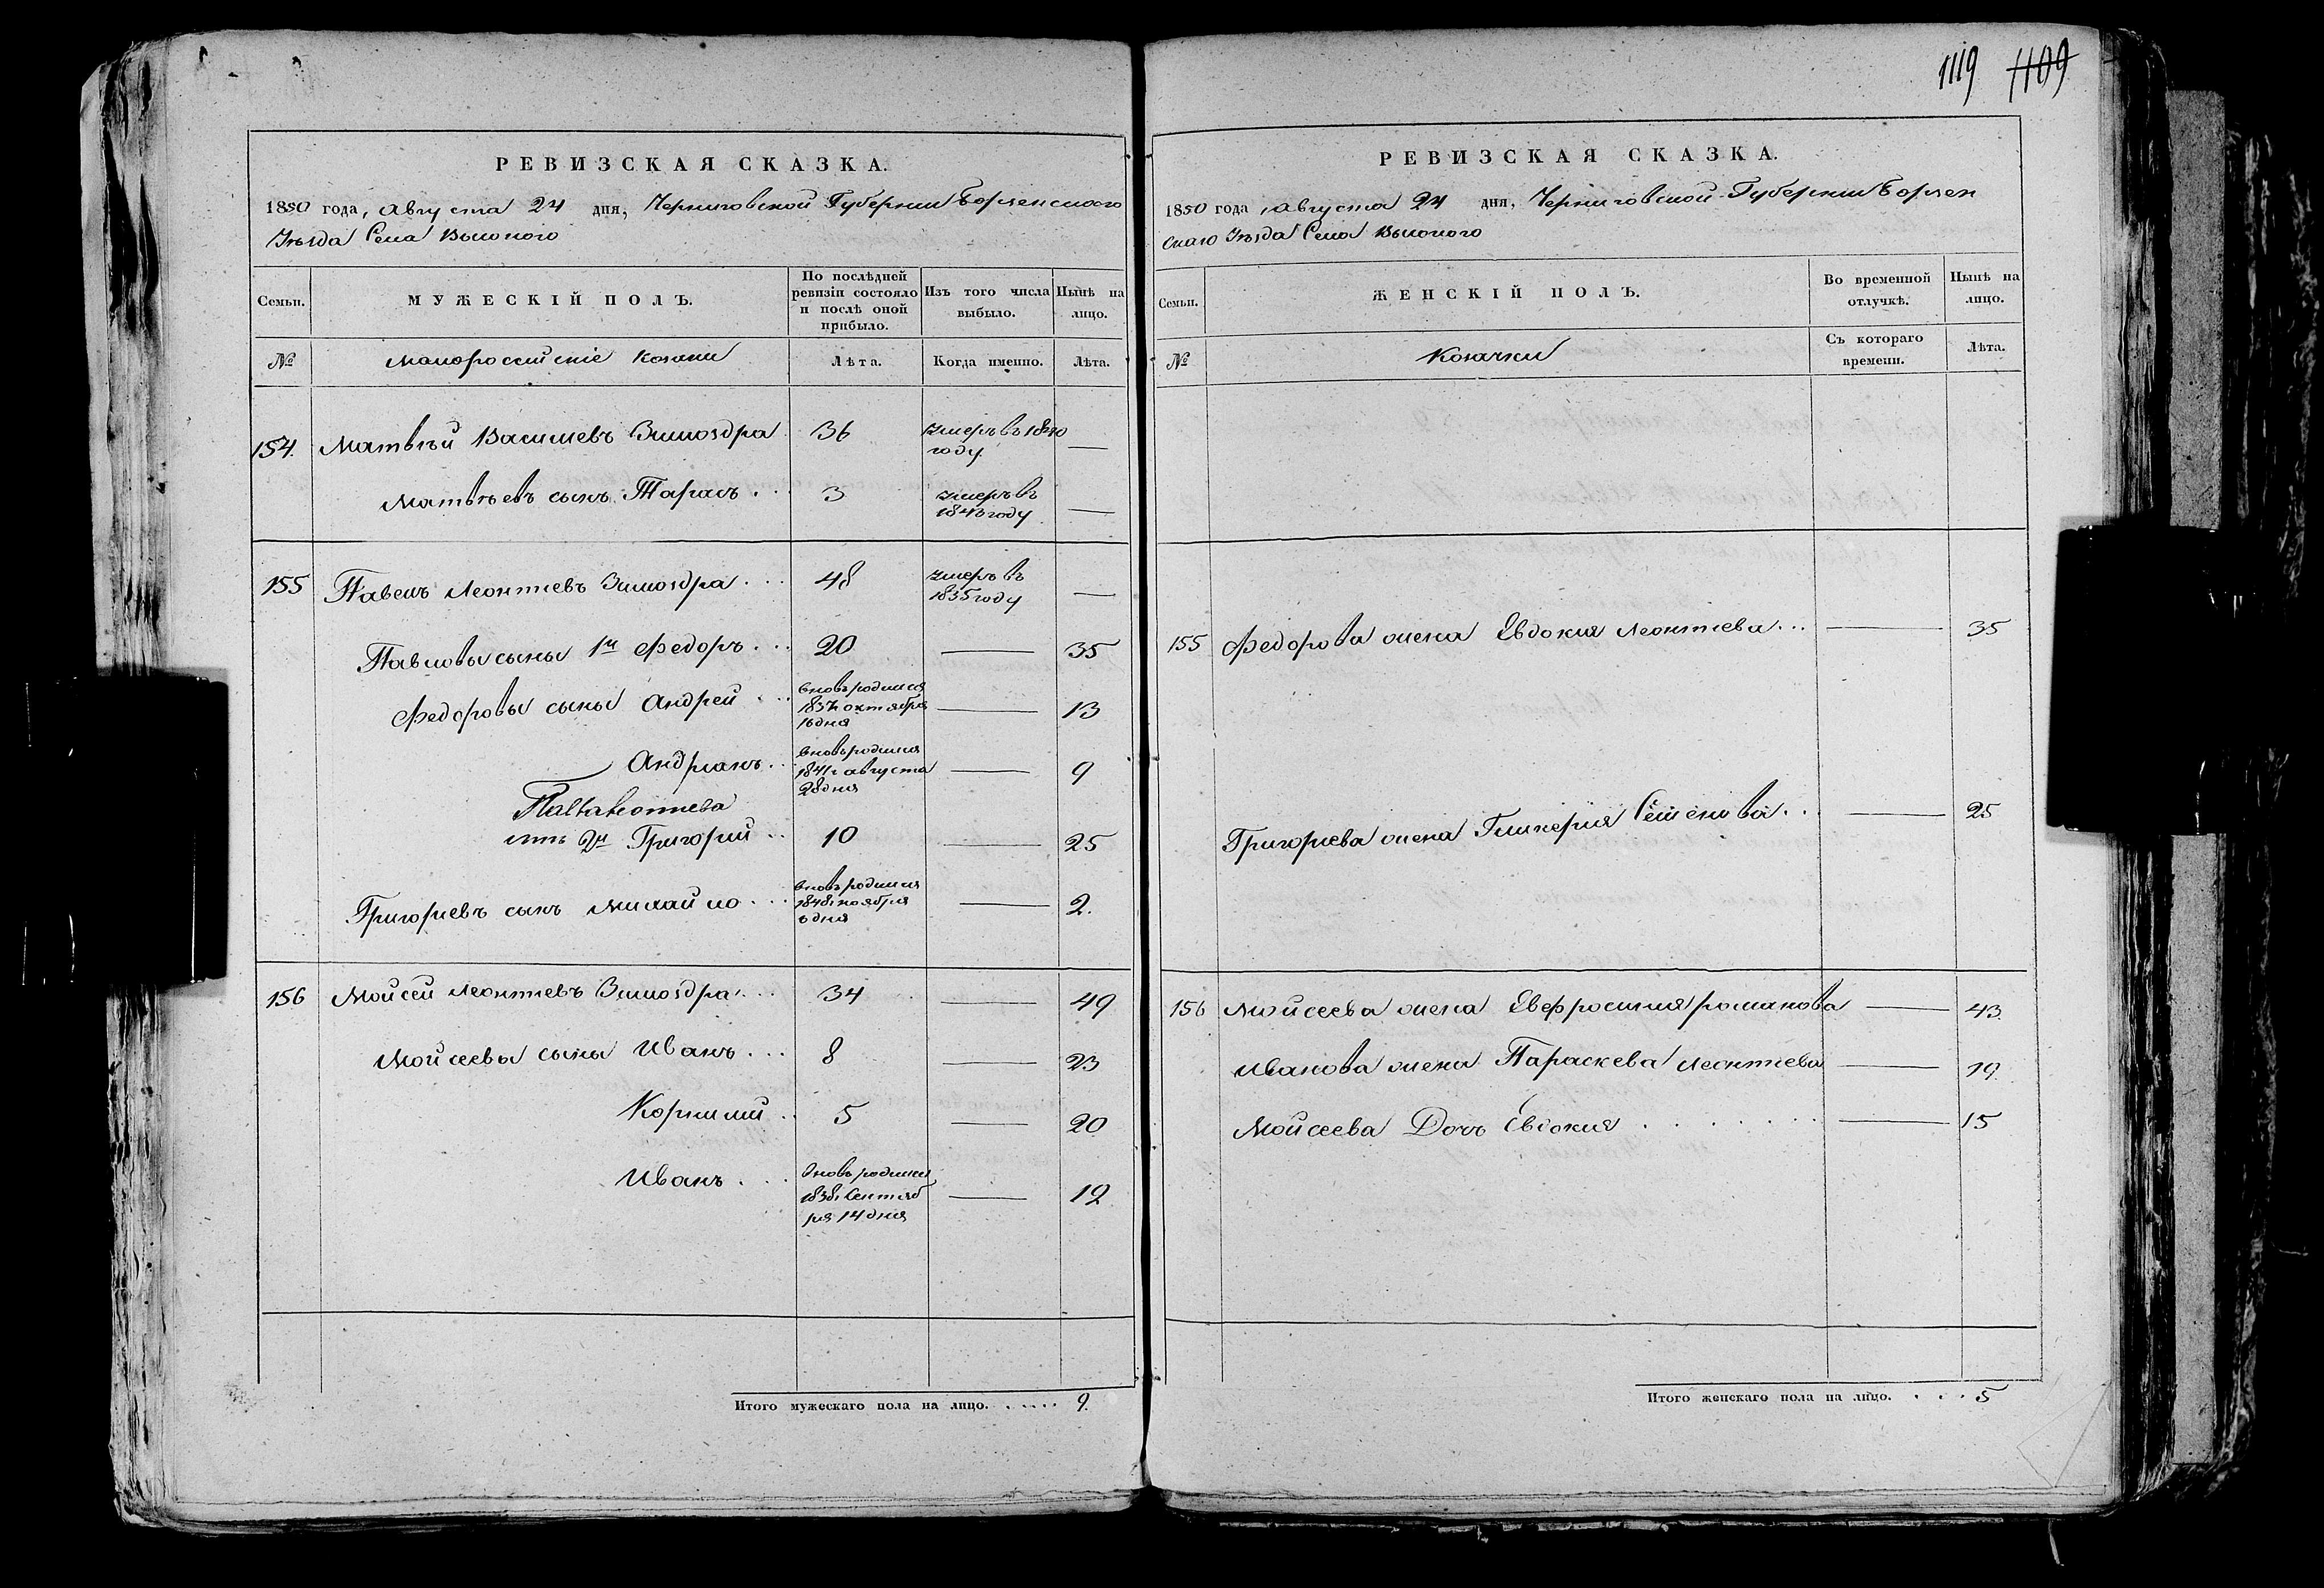 1119 1109
РЕВИЗСКАЯ СКАЗКА.
1850 года, августа 24 дня, Черниговской Губернии Борзенского
Уѣзда Села Высокого
Семьи. МУЖЕСКІЙ ПОЛЪ. По послѣдней ревизіи состояло и послѣ оной прибыло. Изъ того числа выбыло. Нынѣ на лицо.
№ Малороссийскіе козаки Лѣта. Когда именно. Лѣта.
154. Матвѣй Васильевъ Зимоздра 36 умеръ въ 1840 году. —
Матвѣевъ сынъ Тарасъ . . 3 умеръ въ 1843 году —
155 Павелъ Леонтиевъ Зимоздра . . . 48 умеръ въ 1835 году —
Павловы сыны 1й Федоръ . . . 20 — 35
Федоровы сыны Андрей . . . вновь родился 1837 октября 16 дня — 13
Андриянъ . . вновь родился 1841г августа 28 дня — 9
Павла Леонтиева
сынъ 2й Григорий . . 10 — 25
Григориевъ сынъ Михайло . . . вновь родился 1848г ноября 6 дня — 2.
156 Мойсей Леонтиевъ Зимоздра . . . 34 — 49
Мойсеевы сыны Иванъ . . . 8 — 23
Корнилий . . 5 — 20
Иванъ . . . вновь родился 1838г Сентяб ря 14 дня — 12
Итого мужескаго пола на лицо. . . . . . 9.
РЕВИЗСКАЯ СКАЗКА.
1850 года, августа 24 дня, Черниговской Губернии Борзен
скаго Уѣзда Села Высокого
Семьи. ЖЕНСКІЙ ПОЛЪ. Во временной отлучкѣ. Нынѣ на лицо.
№ Козачки Съ котораго времени. Лѣта.
155 Федорова жена Евдокия Леонтиева . . . — 35
Григориева жена Гликерия Семенова . . — 25
156 Мойсеева жена Евфросиния Романова — 43.
Иванова жена Параскева Леонтиева — 19.
Мойсеева Дочь Евдокия . . . . . . . — 15
Итого женскаго пола на лицо. . . . . 5